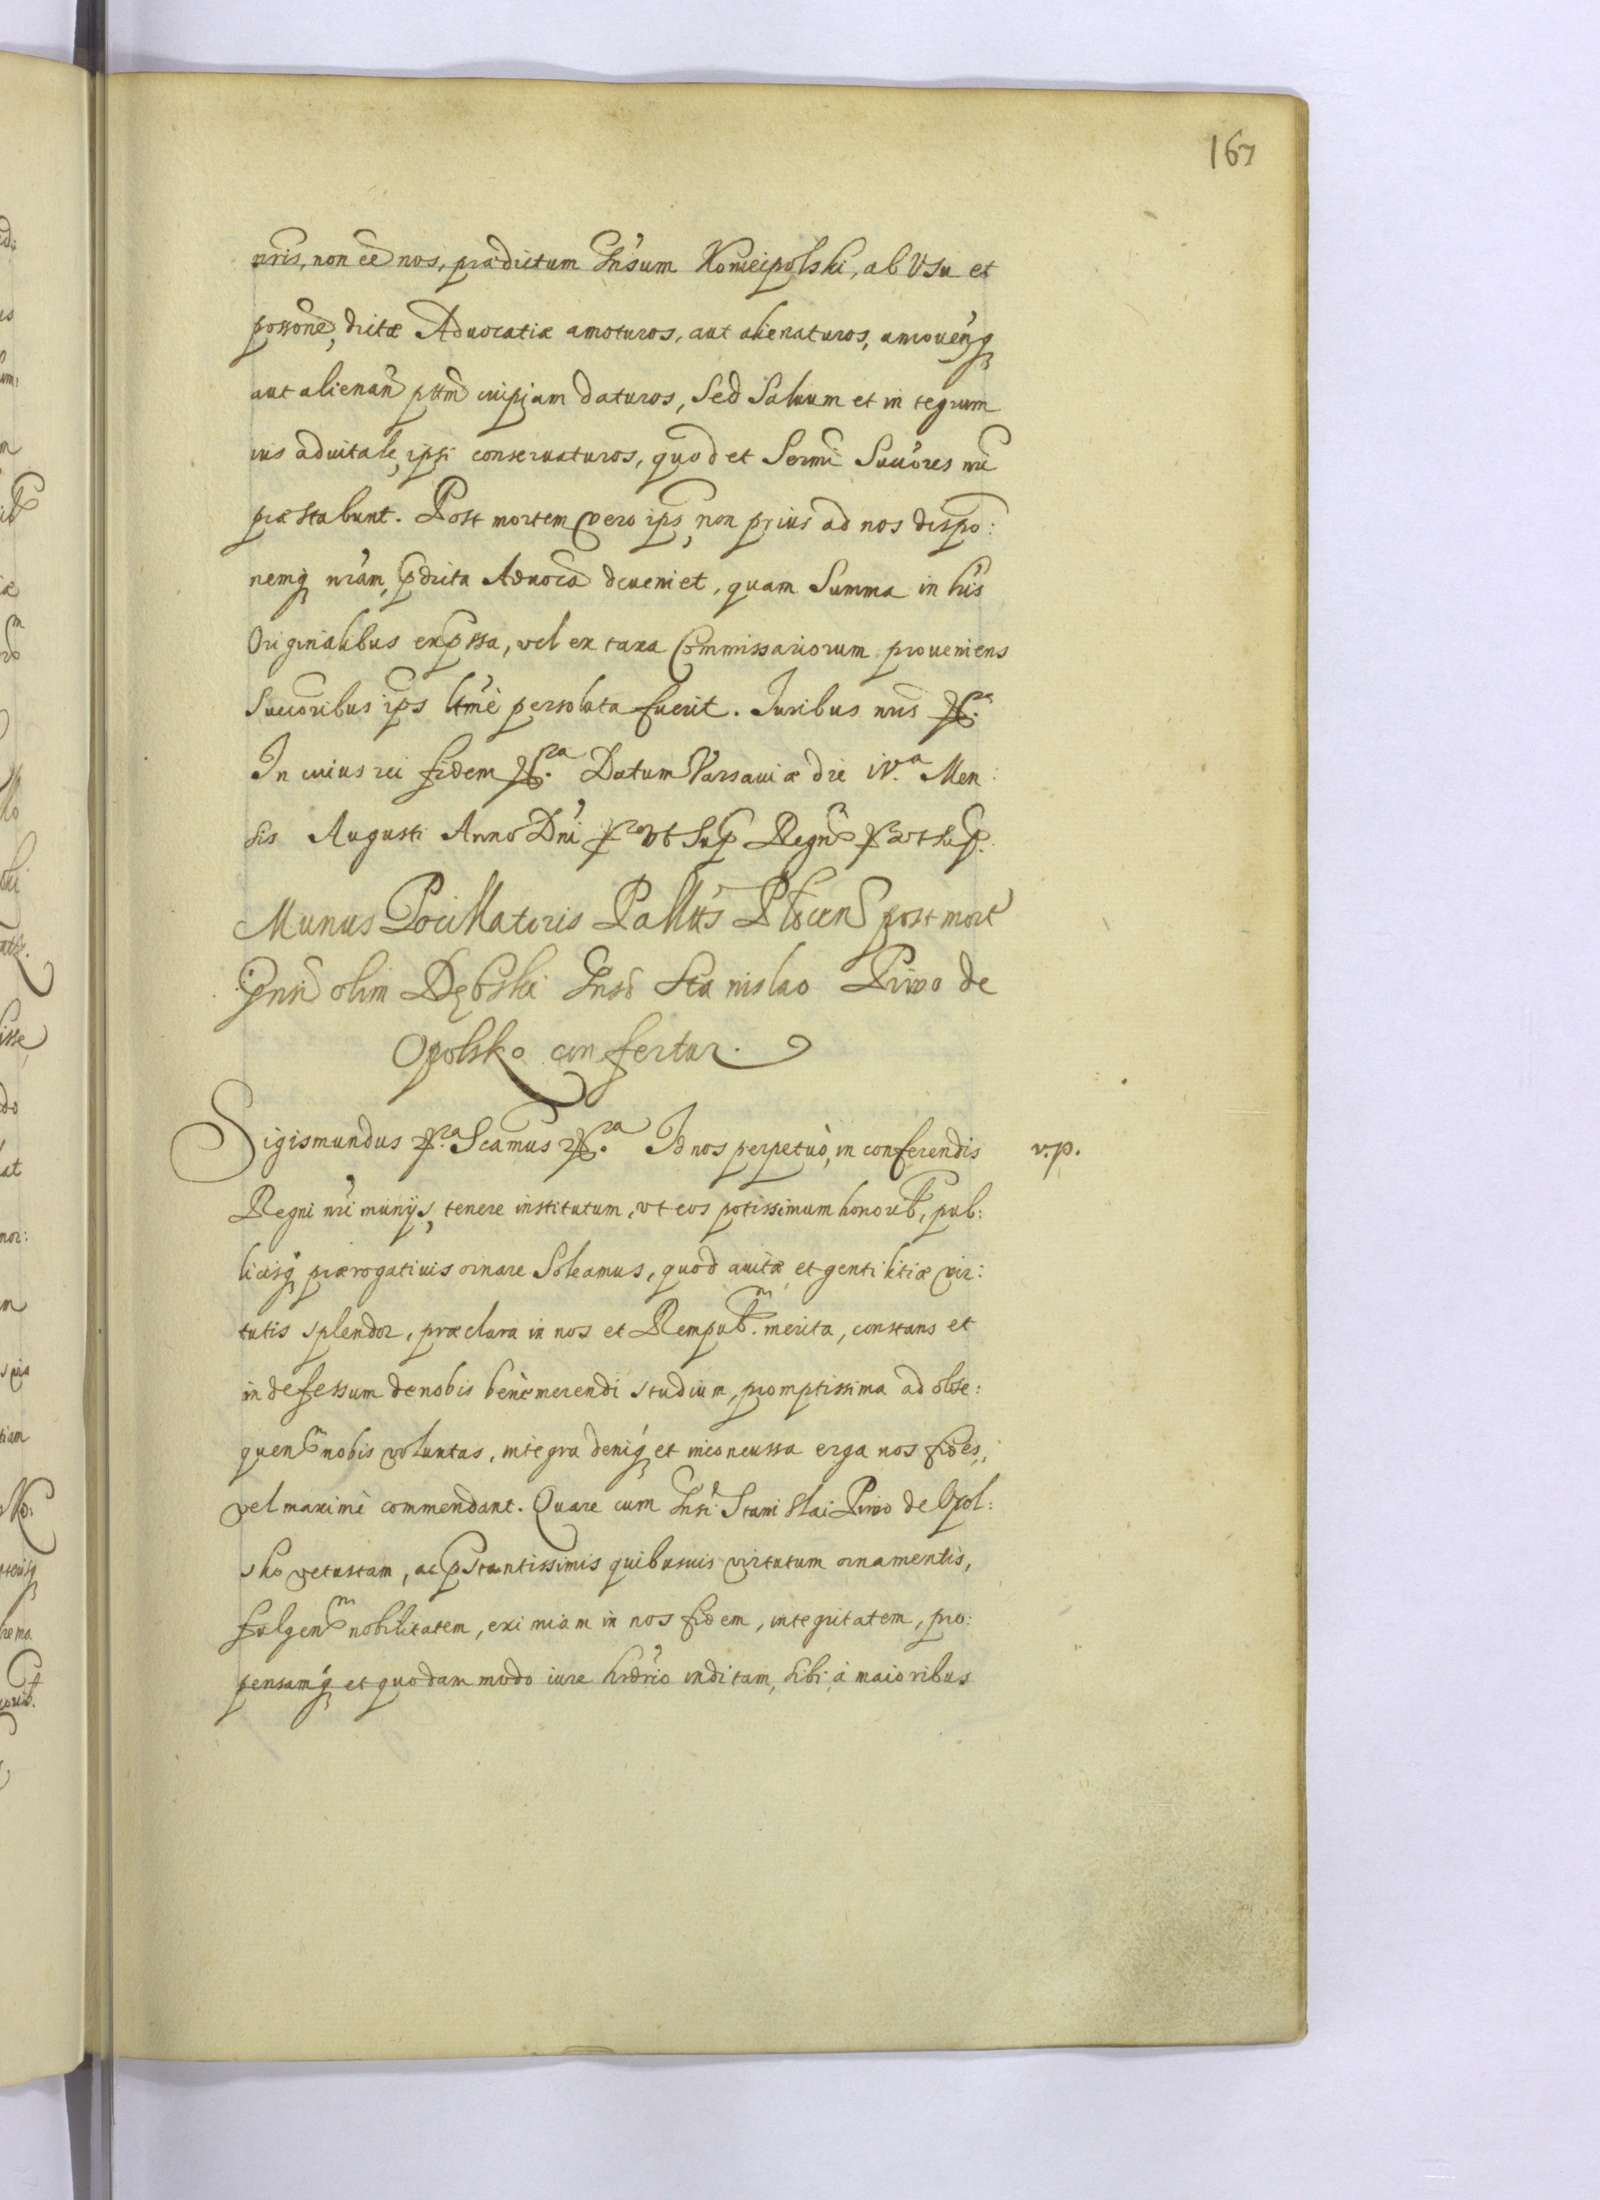 167
nris, non eē nos, prædictum Gnsum Koniecpolski, ab Vsu et
possone, dictæ Aduocatiæ amoturos, aut alienaturos, amouenq
aut alienan ptem cuipiam daturos, Sed Saluum et in tegrum
ius aduitale, ipsi conseruaturos, quod et Sermi Succres nri
præstabunt. Post mortem vero ips non prius ad nos dispo:
nemq nram, pdicta Aduoca deueniet, quam Summa in his
Originalibus expssa, vel ex taxa Commissariorum proueniens
Succoribus ips ltme persoluta fuerit. Iuribus nris &.ra
In cuius rei fidem &.ra Datum Varsauiæ die iv.a Men:
sis Augusti Anno Dni & vt Sup Regn & vt sup.
Munus Pocillatoris Pallts Plocen post mort
Gnsi olim Dębski Gnso Stanislao Piwo de
Opolsko confertur.
Sigismundus &.ra Scamus &.ra Id nos perpetuò, in conferendis
v.p.
Regni nri munijs, tenere institutum, vt eos potissimum honorib, pub:
licisq prærogatiuis ornare Soleamus, quod auitæ et gentilitiæ vir:
tutis splendor, præclara in nos et Rempub.m merita, constans et
in defessum de nobis benè merendi studium, promptissima ad obse:
quen nobis voluntas, integra deniq et inconcussa erga nos fides,
vel maximè commendant. Quare cum Gnsi Stanislai Piwo de Opol:
sko vetustam, ac pstantissimis quibusuis virtutum ornamentis,
fulgenm nobilitatem, eximiam in nos fidem, integritatem, pro:
pensamq et quodam modo iure hrdrio inditam, sibi, à maioribus